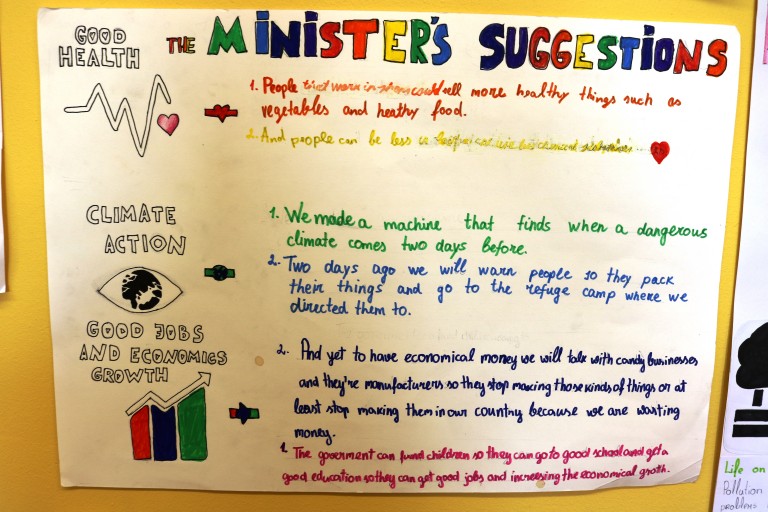 GOOD HEALTH
THE MINISTER'S SUGGESTIONS
1. People that work in shops could sell more healthy things such as
vegetables and heathy food.
2. And people can be less
CLIMATE
ACTION
1. We made a machine that finds when a dangerous
climate comes two days before.
2. Two days ago we will warn people so they pack
their things and go to the refuge camp where we
directed them to.
GOOD JOBS
AND ECONOMICS
GROWTH
2. And yet to have economical money we will talk with candy businesses
and they're manufacturers so they stop making those kinds of things or at
least stop making them in our country because we are wasting
money.
1. The goverment can fund children so they can go to good school and get a
good education so they can get good jobs and increasing the economical groth.
Life on
Pollution
problems